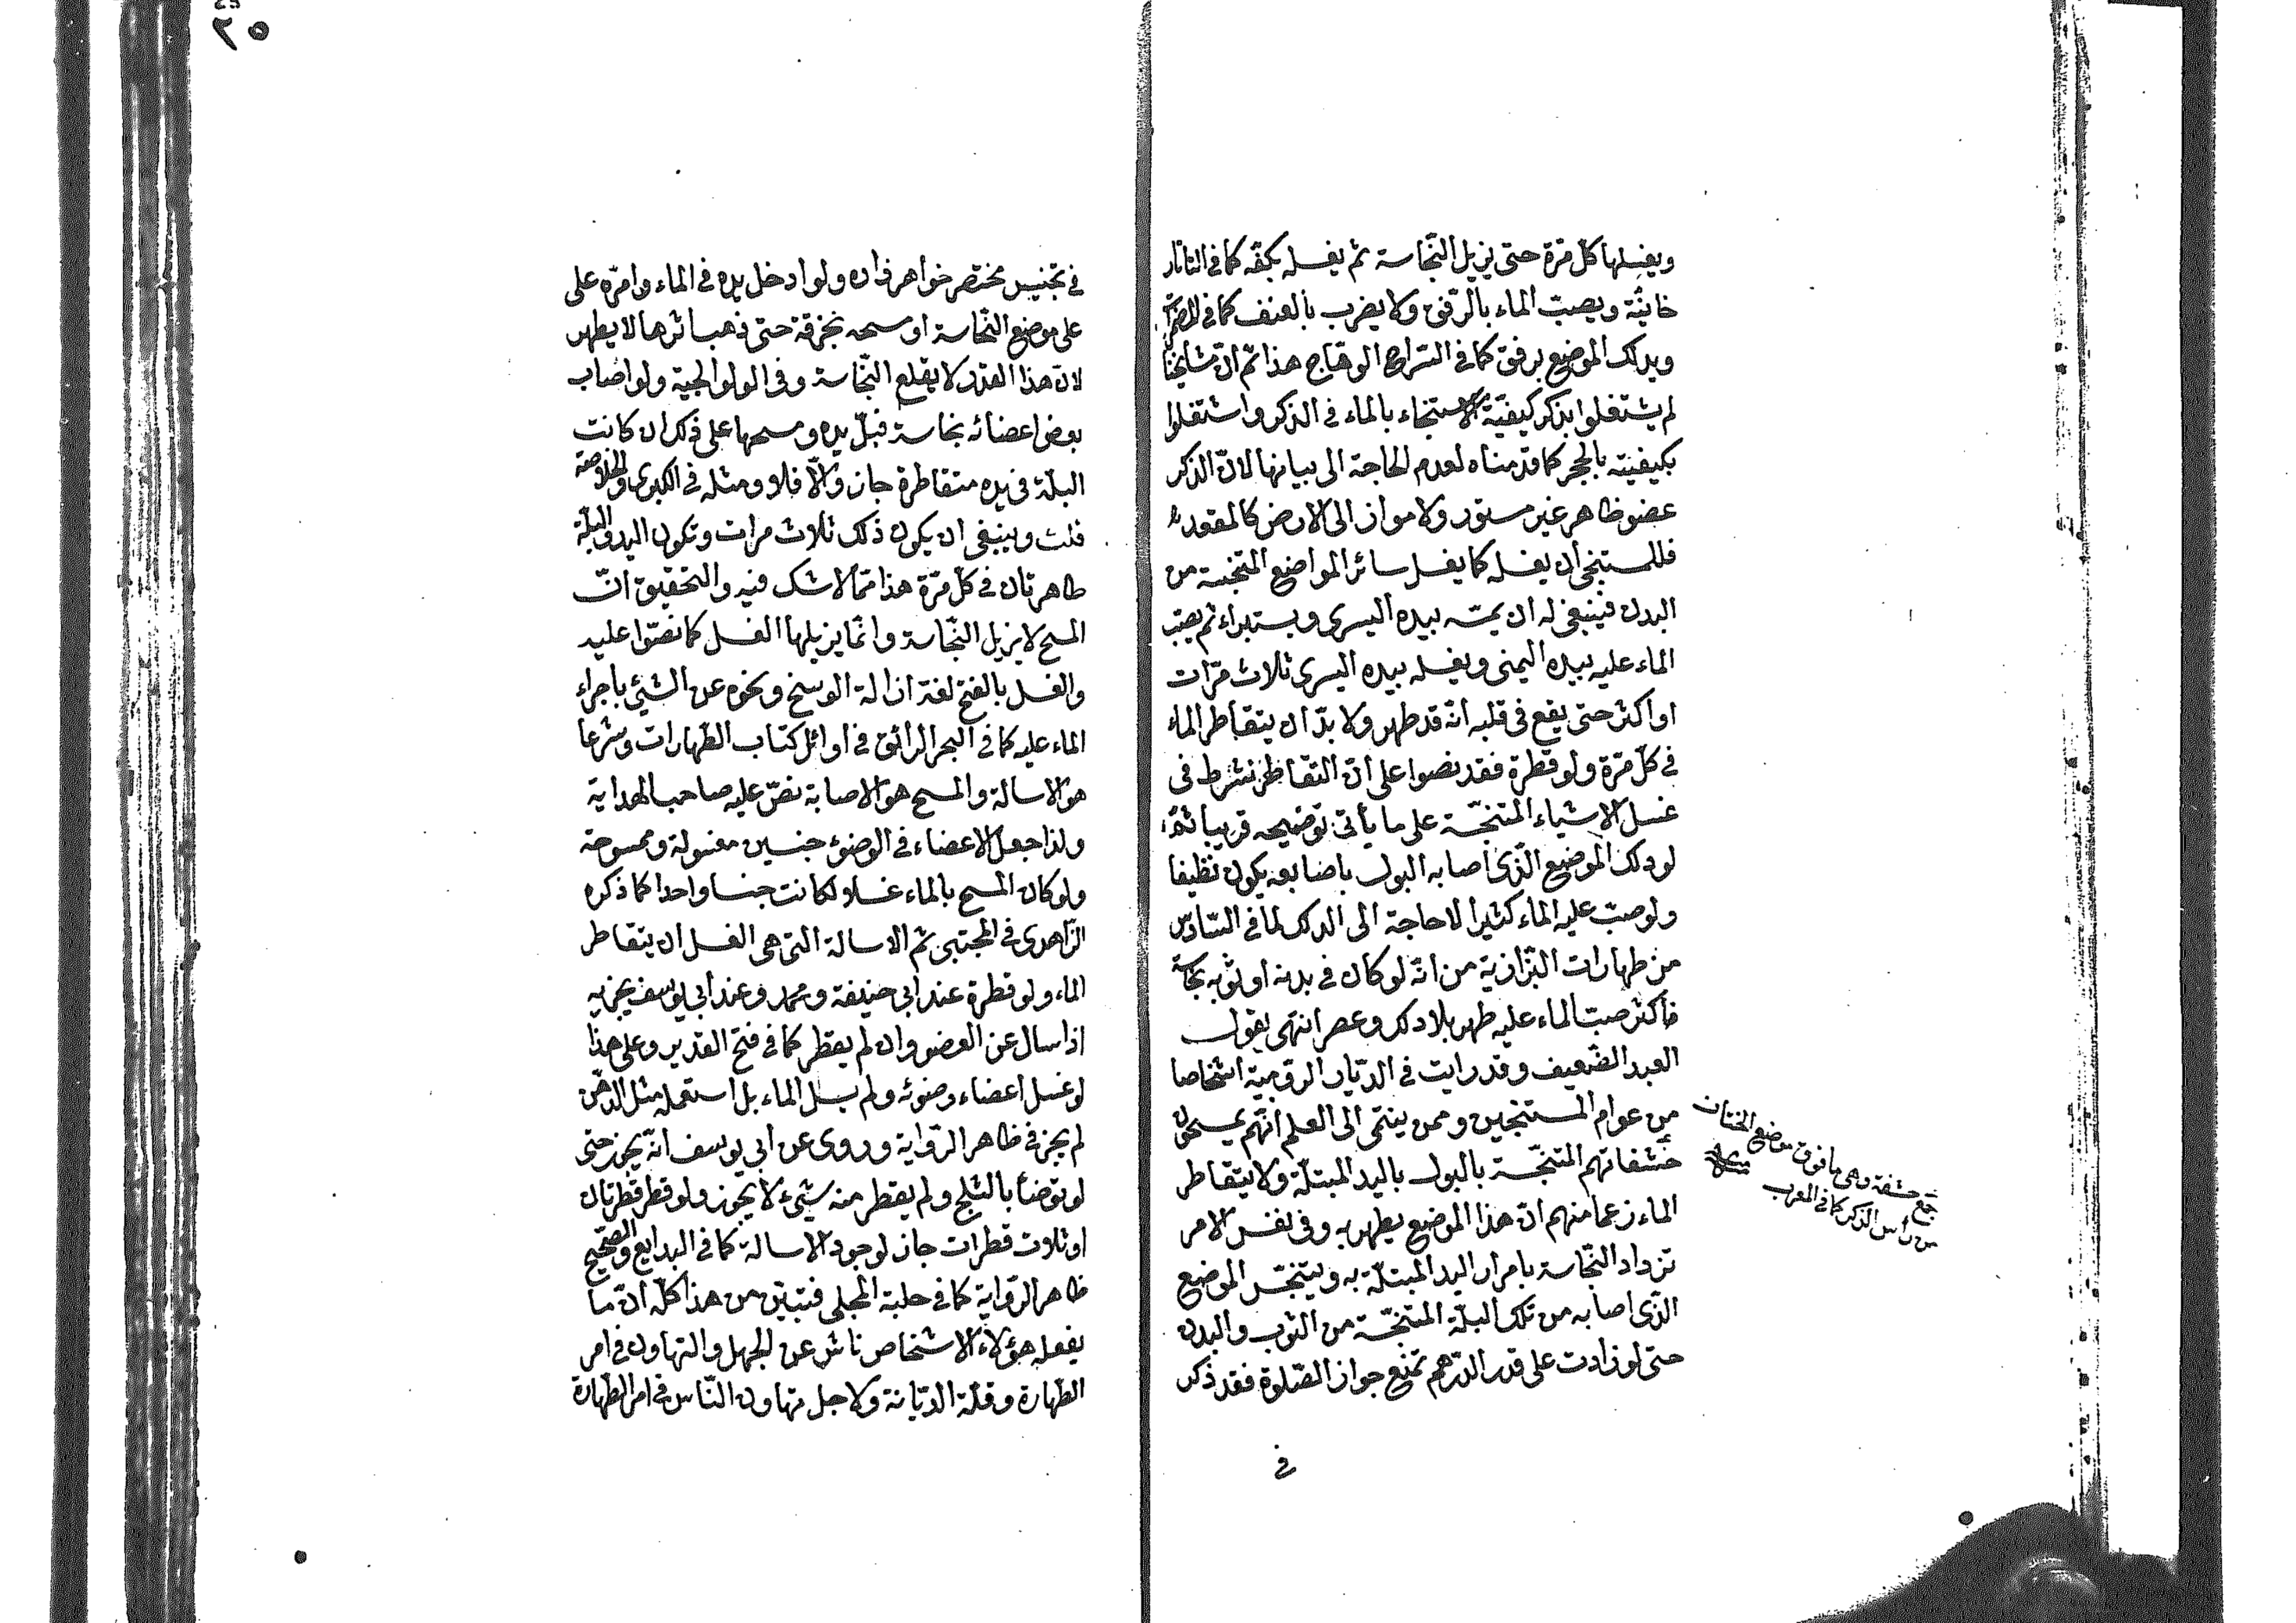 ويغسلها كل مرّة حتى يزيل النّجاسة ثم يغسله بكفّه كما فى التاتار
خانيّة ويصبّ الماء بالرّفق ولا يضرب بالعنف كما فى المضمرات
ويدلك الموضع برفق كما فى السّراج الوهّاج هذا ثم انّ مشايخنا
لم يشتغلوا بذكر كيفيّة الاستنجاء بالماء فى الذكر واشتغلوا
بكيفيته بالحجر كما قدّمناه لعدم الحاجة الى بيانها لانّ الذكر
عضو ظاهر غير مستور ولا مواز الى الارض كالمقعدة
فللمستنجى أن يغسله كما يغسل سائر المواضع المتنجسة من
البدن فينبغى له ان يمسّه بيده اليسرى ويستبراء ثم يصب
الماء عليه بيده اليمنى ويغسله بيده اليسرى ثلاث مرّات
او اكثر حتى يقع فى قلبه انّه قد طهر ولا بدّ ان يتقاطر الماء
فى كل مرّة ولو قطرة فقد نصوا على انّ التقاطر شرط فى
غسل الاشياء المتنجّسة على ما يأتى توضيحه قريبا ثم
لو دلك الموضع الّذى أصابه البول باصابعه يكون نظيفا
ولو صبّ عليه الماء كثيرا لا حاجة الى الدلك لما فى السّادس
من طهارات البزّازية من انّه لو كان فى بدنه او ثوبه نجاسة
فاكثر صبّ الماء عليه طهر بلا دلك وعصر انتهى يقول
العبد الضّعيف وقد رايت فى الدّيار الرّومية اشخاصا
من عوام المستنجين وممن ينتمى الى العلم انّهم يمسحون
حشفاتهم المتنجّسة بالبول باليد المبتلّة ولا يتقاطر
الماء زعما منهم انّ هذا الموضع يطهر به وفى نفس الامر
تزداد النّجاسة بامرار اليد المبتلّة به ويتنجّس الموضع
الّذى اصابه من تلك البلّة المتنجّسة من الثوب والبدن
حتى لو زادت على قدر الدّرهم تمنع جواز الصّلوة فقد ذكر
فى
جمع حشفة وهى ما فوق موضع الختان
من رأس الذكر كما فى المغرب
٢٥
فى تجنيس مختصر خواهر زاده ولو ادخل يده فى الماء وامرّه على
على موضع النّجاسة او مسحه بخرقة حتى ذهب اثرها لا يطهر
لانّ هذا القدر لا يقلع النّجاسة وفى الولوالجية ولو اصاب
بعض اعضائه نجاسة فبلّ يده ومسحها على ذلك ان كانت
البلّة فى يده متقاطرة جاز والّا فلا ومثله فى الكبرى والخلاصة
قلت وينبغى ان يكون ذلك ثلاث مرات وتكون اليد والبلّة
طاهرتان فى كلّ مرّة هذا ممّا لا شك فيه والتحقيق انّ
المسح لا يزيل النّجاسة وانّما يزيلها الغسل كما نصّوا عليه
والغسل بالفتح لغة ازالة الوسخ ونحوه عن الشيئ باجراء
الماء عليه كما فى البحر الرائق فى اوائل كتاب الطّهارات وشرعا
هو الاسالة والمسح هو الاصابة نصّ عليه صاحب الهداية
ولذا جعل الاعضاء فى الوضوء جنسين مغسولة وممسوحة
ولو كان المسح بالماء غسلا لكانت جنسا واحدا كما ذكره
الزّاهدى فى المجتبى ثم الاسالة التى هى الغسل ان يتقاطر
الماء ولو قطرة عند ابى حنيفة ومحمد وعند أبى يوسف يجزيه
اذا سال عن العضو وان لم يقطر كما فى فتح القدير وعلى هذا
لو غسل اعضاء وضوئه ولم يسل الماء بل استعمله مثل الدّهن
لم يجز فى ظاهر الرّواية وروى عن أبى يوسف انّه يجوز حتى
لو توضأ بالثلج ولم يقطر منه شيئ لا يجوز ولو قطر قطرتان
او ثلاث قطرات جاز لوجود الاسالة كما فى البدايع والصّحيح
ظاهر الرّواية كما فى حلبة المجلى فتبيّن من هذا كلّه انّ ما
يفعله هؤلاء الاشخاص ناش عن الجهل والتهاون فى امر
الطّهارة وقلّة الدّيانة ولاجل تهاون النّاس فى امر الطّهارة